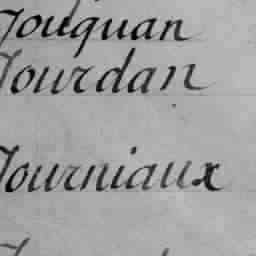 Jouquan
Jourdan
Journiaux